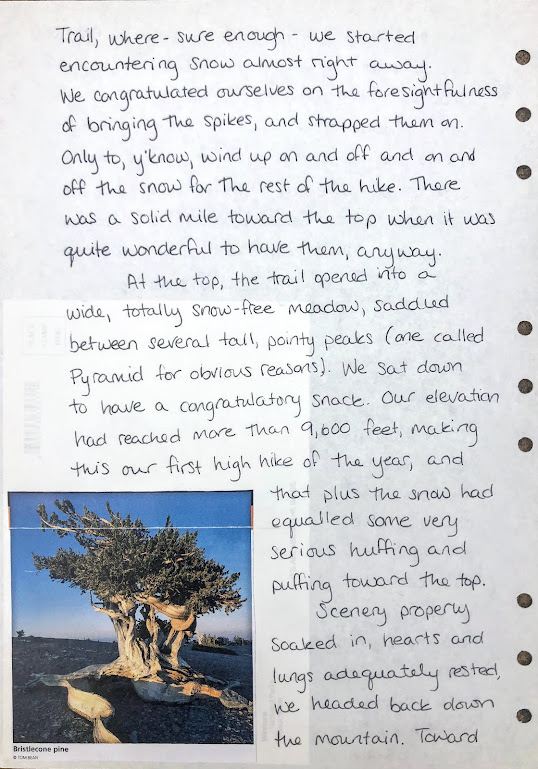 Trail, where - sure enough - we started
encountering snow almost right away.
We congratulated ourselves on the foresightfulness
of bringing the spikes, and strapped them on.
Only to, y'know, wind up on and off and on and
off the snow for the rest of the hike. There
was a solid mile toward the top when it was
quite wonderful to have them, anyway.
At the top, the trail opened into a
wide, totally snow-free meadow, saddled
between several tall, pointy peaks (one called
Pyramid for obvious reasons). We sat down
to have a congratulatory snack. Our elevation
had reached more than 9,600 feet, making
this our first high hike of the year, and
that plus the snow had
equalled some very
serious huffing and
puffing toward the top.
Scenery properly
soaked in, hearts and
lungs adequately rested,
we headed back down
the mountain. Toward
Bristlecone pine
© TOM BEAN